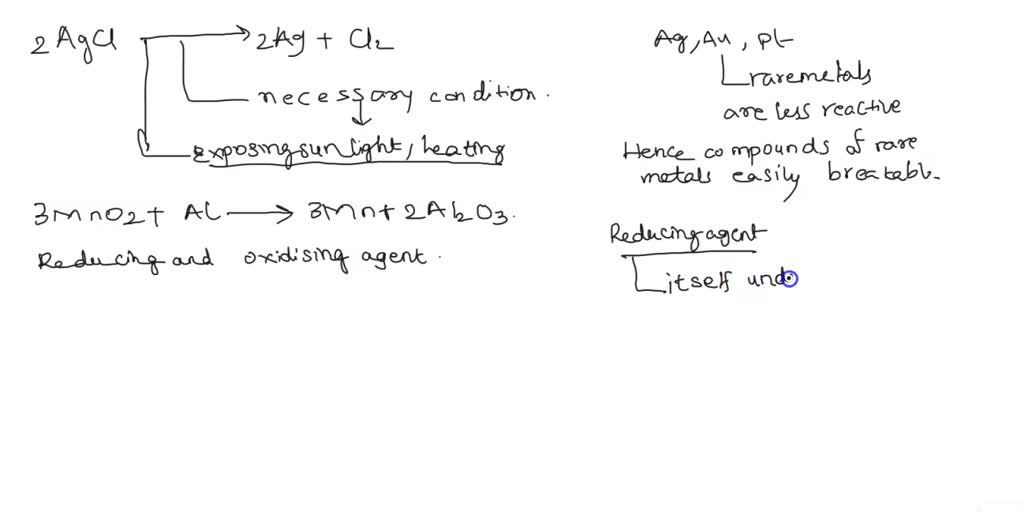 2AgCl → 2Ag + Cl2
necessary condition.
exposing sun light, heating
3MnO2 + Al → 3Mn + 2Al2O3.
Reducing and oxidising agent.
Ag, Au, Pt
rare metals
are less reactive
Hence compounds of rare
metals easily breakable.
Reducing agent
itself und